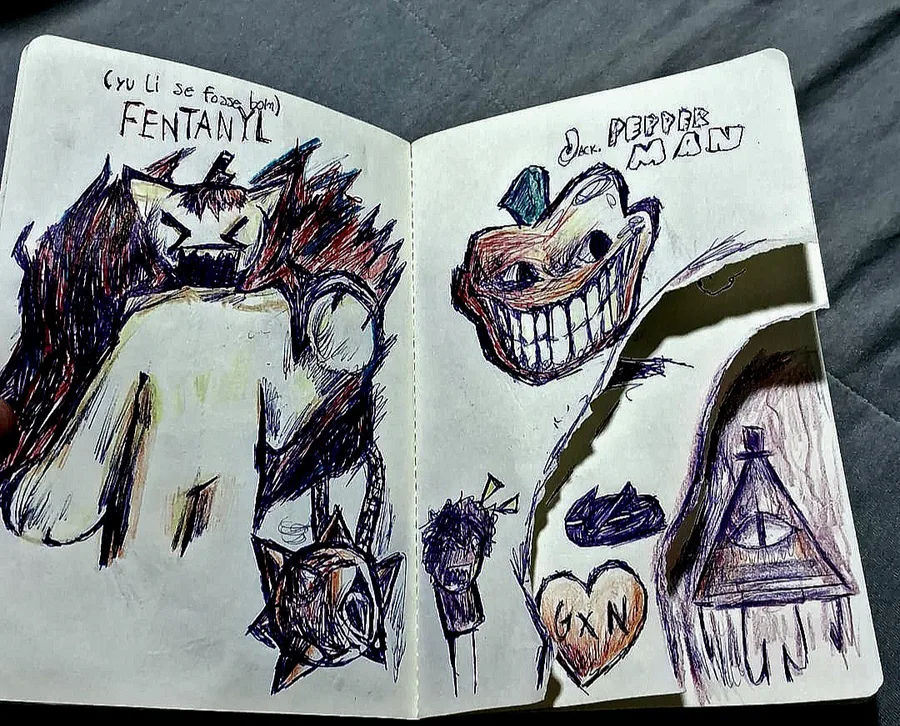 (yu Li se fosse bom)
FENTANYL
Jack. PEPPER
MAN
GxN